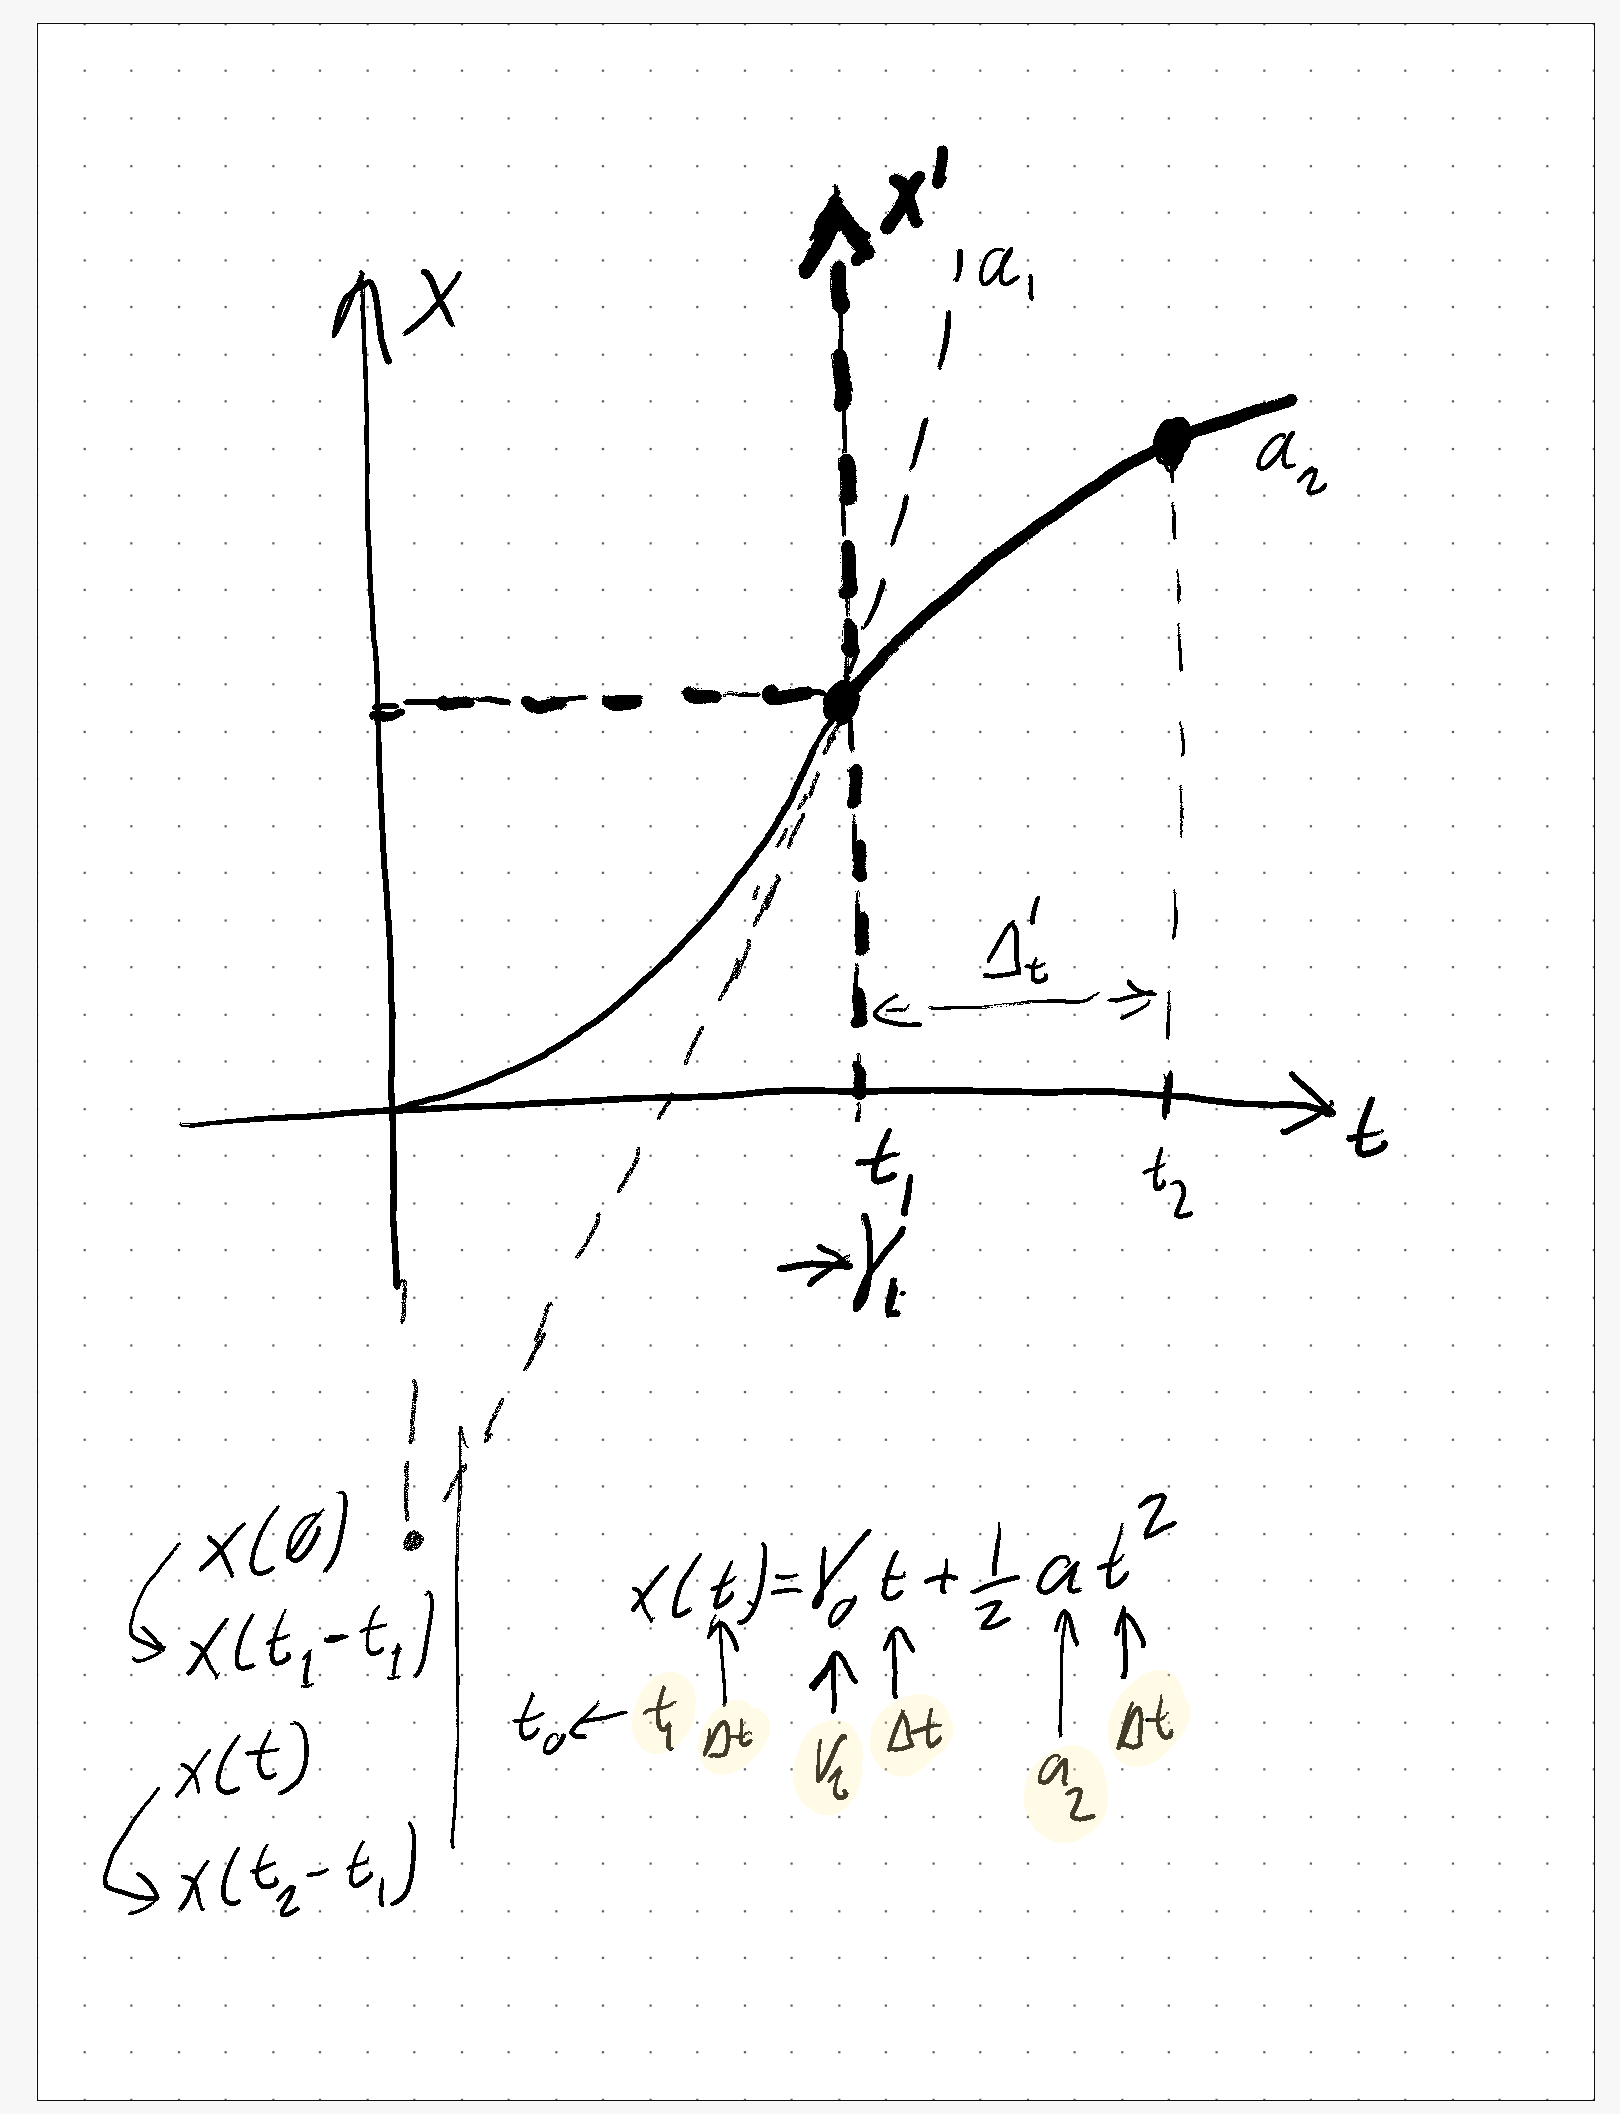 x'
a₁
x
a₂
Δ't
t
t₁
t₂
→ V't
x(0)
x(t₁-t₁)
x(t)
x(t₂-t₁)
x(t)=V₀t+½at²
t₀ ← t₁ Δt V₁ Δt a₂ Δt